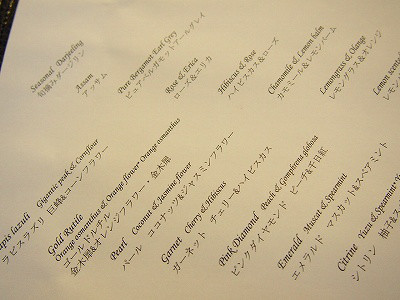 Seasonal Darjeeling
旬摘みダージリン
Assam
アッサム
Pure Bergamot Earl Grey
ピュアベルガモットアールグレイ
Rose & Erica
ローズ&エリカ
Hibiscus & Rose
ハイビスカス&ローズ
Chamomile & Lemon balm
カモミール&レモンバーム
Lemongrass & Orange
レモングラス&オレンジ
Lemon
レモン
lapis lazuli Gigantic peak & Cornflour
ラピスラズリ 巨峰&コーンフラワー
Gold Rutile
Orange osmanthus & Orange flower* Orange osmanthus
ゴールドルチル
金木犀&オレンジフラワー・金木犀
Pearl Coconut & Jasmine flower
パール ココナッツ&ジャスミンフラワー
Garnet Cherry & Hibiscus
ガーネット チェリー&ハイビスカス
Pink Diamond Peach & Gomphrena globosa
ピンクダイヤモンド ピーチ&千日紅
Emerald Muscat & Spearmint
エメラルド マスカット&スペアミント
Citrine Yuzu & Spearmint
シトリン 柚子&